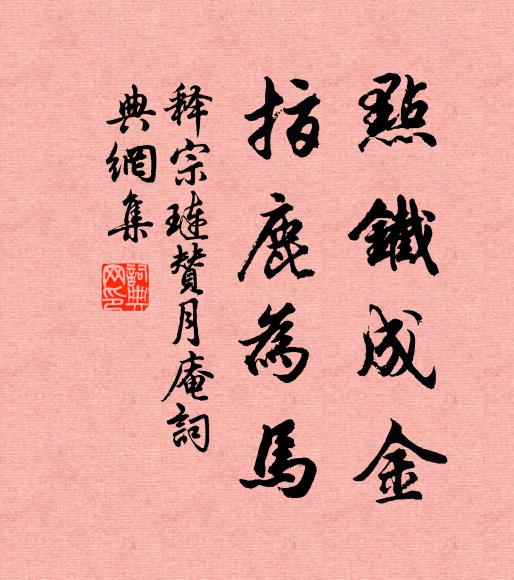 點鐵成金
指鹿為馬
释宗璉贊月庵詞
典網集
詞典
网印